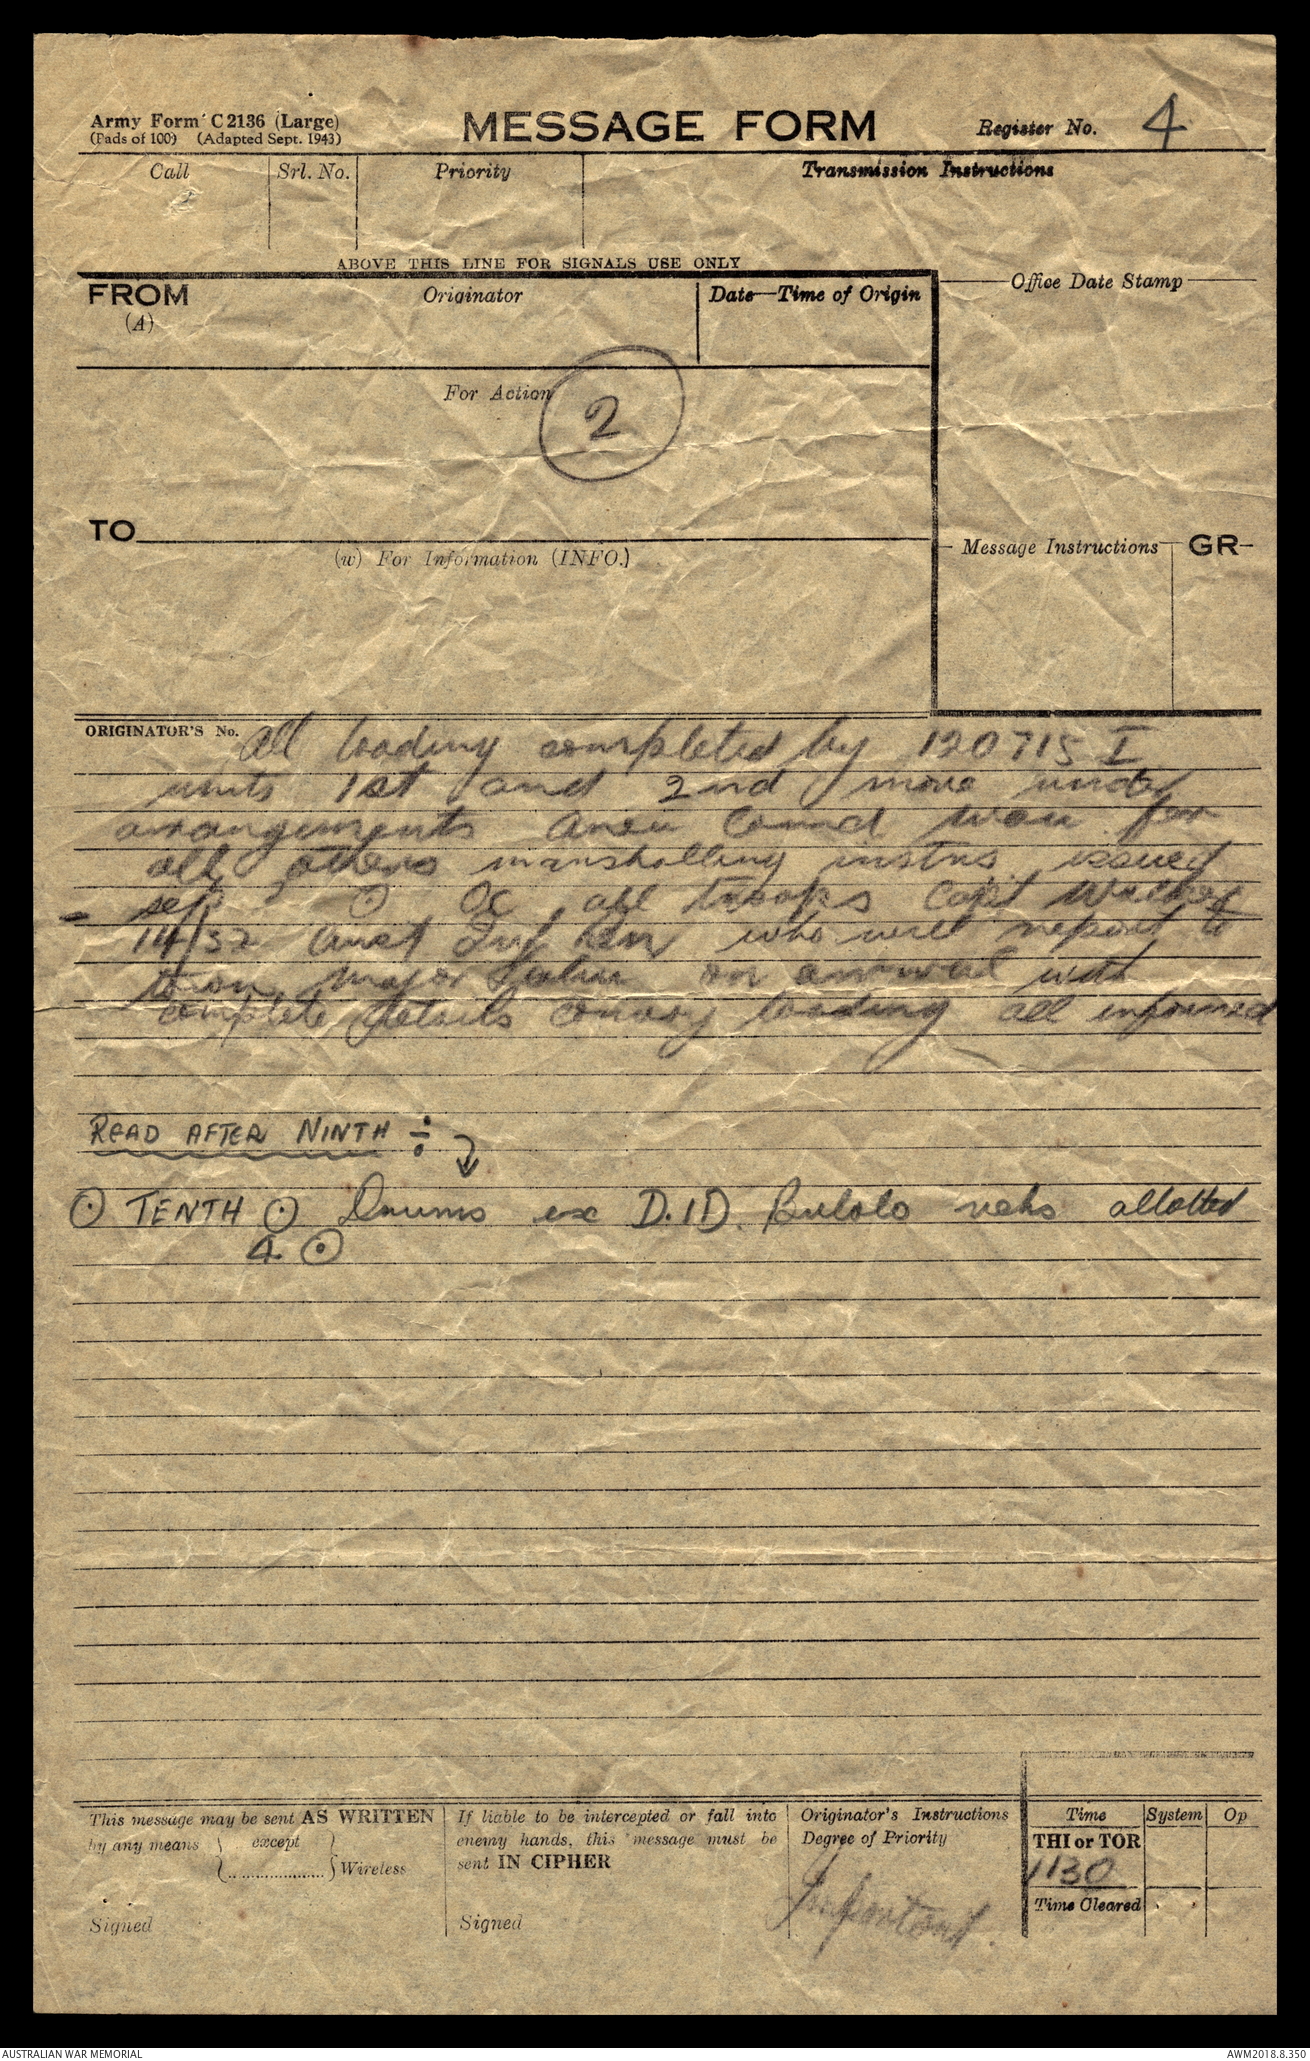 Army Form C2136 (Large)
(Pads of 100) (Adapted Sept. 1943)
MESSAGE FORM
Register No. 4
Call
Srl. No.
Priority
Transmission Instructions
ABOVE THIS LINE FOR SIGNALS USE ONLY
FROM
(A)
Originator
Date—Time of Origin
Office Date Stamp
For Action
2
TO
(w) For Information (INFO.)
Message Instructions
GR
ORIGINATOR'S No.
All loading completed by 120715 I
units 1st and 2nd move under
arrangements area Comd Wau for
all others marshalling instns issued
sep ⊙ OC all troops Capt
14/32 Aust Inf Bn who will report to
Major on arrival with
complete details convoy loading all informed
READ AFTER NINTH ÷
⊙ TENTH ⊙ Drums ex D.I.D. Bulolo vehs allotted
4 ⊙
This message may be sent AS WRITTEN
by any means except
Wireless
Signed
If liable to be intercepted or fall into
enemy hands, this message must be
sent IN CIPHER
Signed
Originator's Instructions
Degree of Priority
Important.
Time
System
Op
THI or TOR
1130
Time Cleared
AUSTRALIAN WAR MEMORIAL
AWM2018.8.350